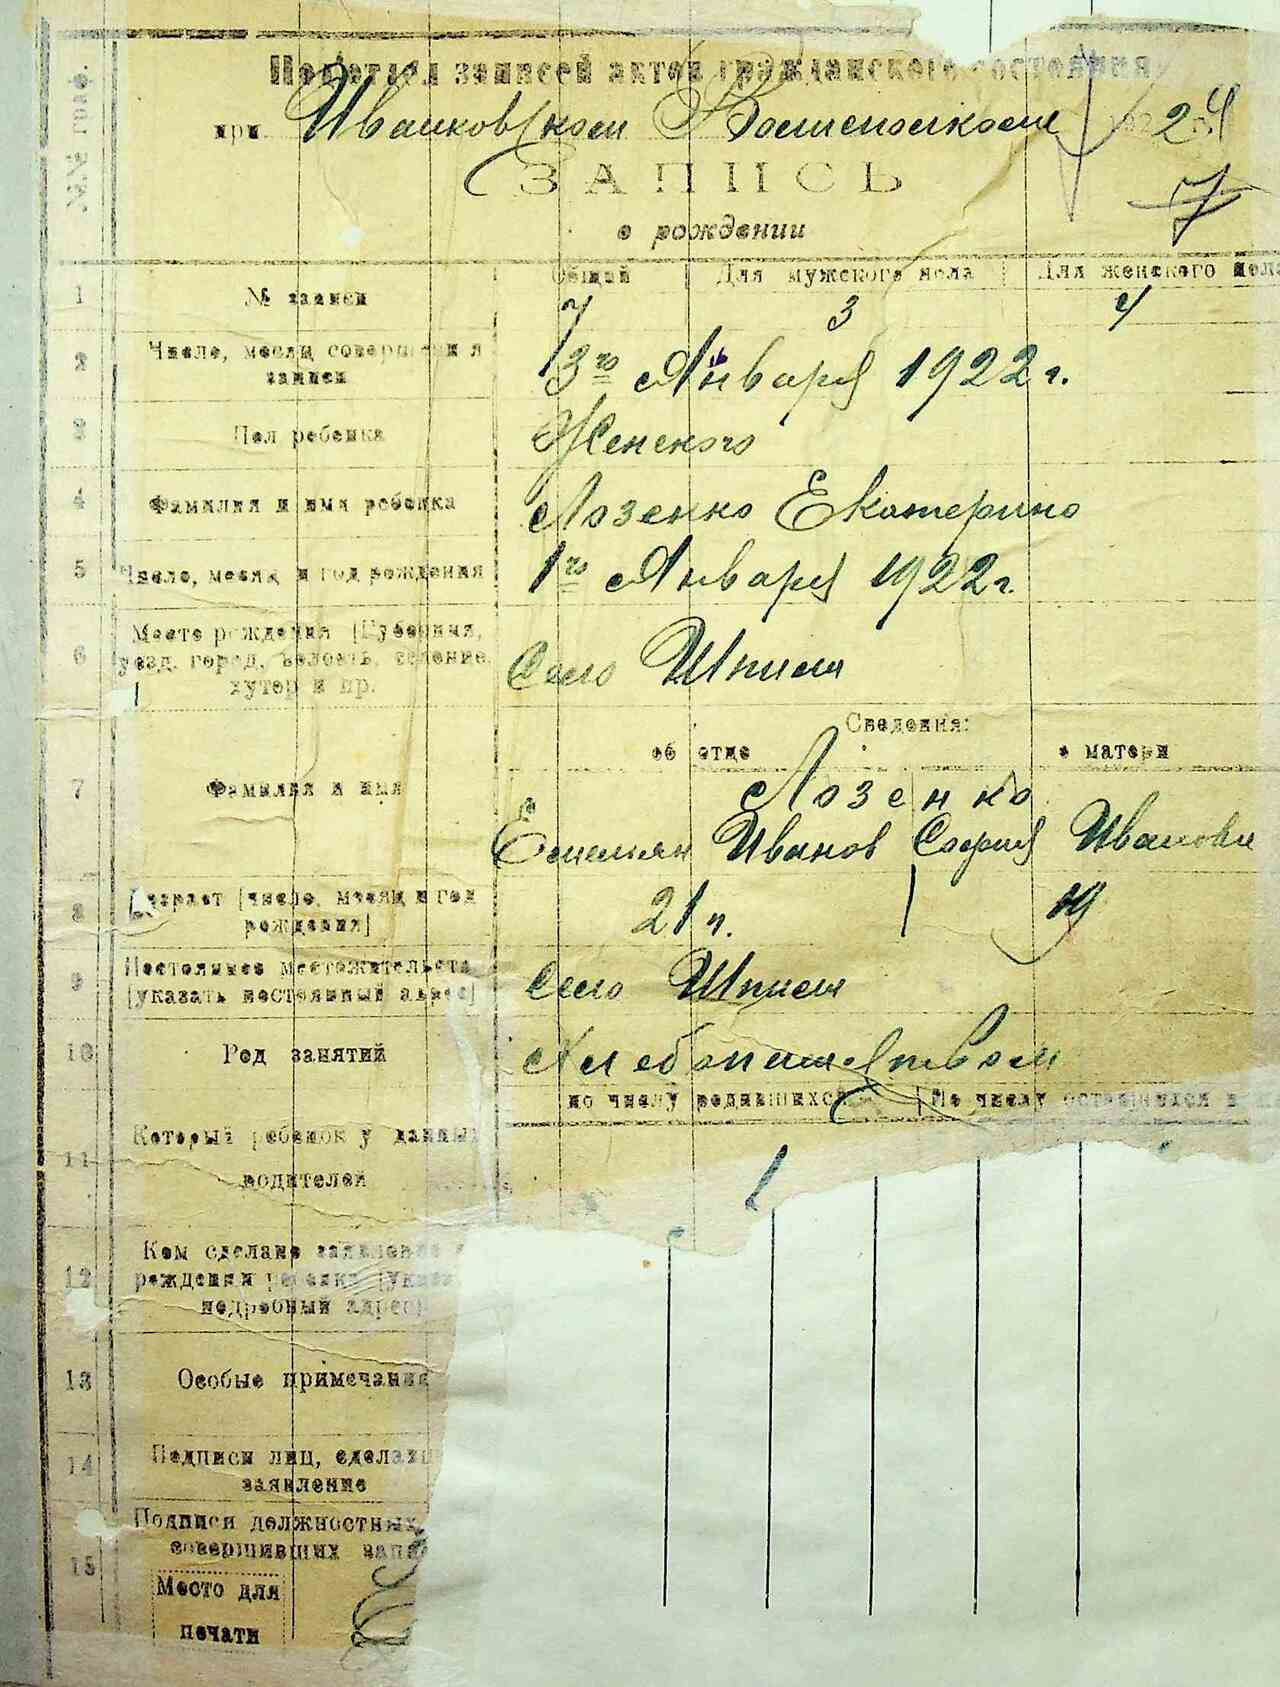 №№ граф.
Подотдел записей актов гражданского состояния
при Иванковском Волисполкоме 192 2 г.
ЗАПИСЬ
о рождении
7
Общий Для мужского пола Для женского пола
1 № записи 7 3 4
2 Число, месяц совершения записи 3го Января 1922 г.
3 Пол ребенка Женского
4 Фамилия и имя ребенка Лозенко Екатерина
5 Число, месяц и год рождения 1го Января 1922 г.
6 Место рождения [Губерния, уезд, город, волость, селение, хутор и пр. Село Шпили
Сведения:
об отце о матери
7 Фамилия и имя Лозенко
Емельян Иванов София Ивановн
8 Возраст [число, месяц и год рождения] 21 г. 19
9 Постоянное местожительство [указать постоянный адрес] Село Шпили
10 Род занятий Хлебопашеством
по числу родившихся По числу оставшихся в
11 Который ребенок у данных родителей 1
12 Кем сделано заявление о рождении ребенка (указ подробный адрес)
13 Особые примечания
14 Подписи лиц, сделавш заявление
15 Подписи должностных совершивших запи
Место для
печати